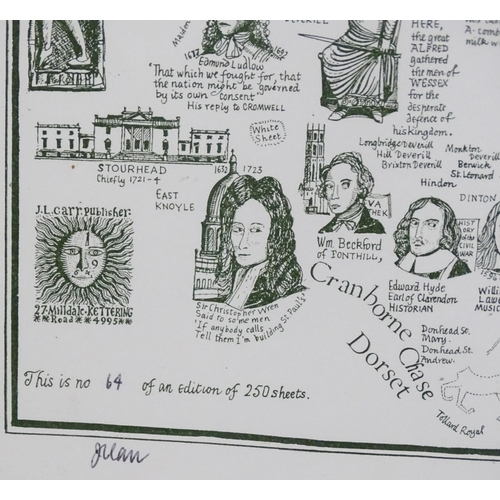 DEVERILL
Maiden
1617 1692
Edmund Ludlow
'That which we fought for, that
the nation might be governed
by its own consent
His reply to CROMWELL
HERE,
the great
ALFRED
gathered
the men of
WESSEX
for the
desperate
defence of
his Kingdom.
A comb
milk w
White
Sheet
STOURHEAD
Chiefly 1721-4
EAST
KNOYLE
1632 1723
Longbridge Deverill
Hill Deverill
Brixton Deverill
Monkton
Deverill
Berwick
St. Leonard
Hindon
DINTON
J.L. Carr, publisher:
27 Milldale - KETTERING
Road 4995
Sir Christopher Wren
Said to some men
'If anybody calls
Tell them I'm building St. Paul's'
VA
THEK
Wm. Beckford
of FONTHILL,
HIST
ORY
of the
CIVIL
WAR
Edward Hyde
Earl of Clarendon
HISTORIAN
Willi
Law
MUSIC
Cranborne Chase
Dorset
Donhead St.
Mary.
Donhead St.
Andrew.
Tollard Royal
This is no 64 of an edition of 250 sheets.